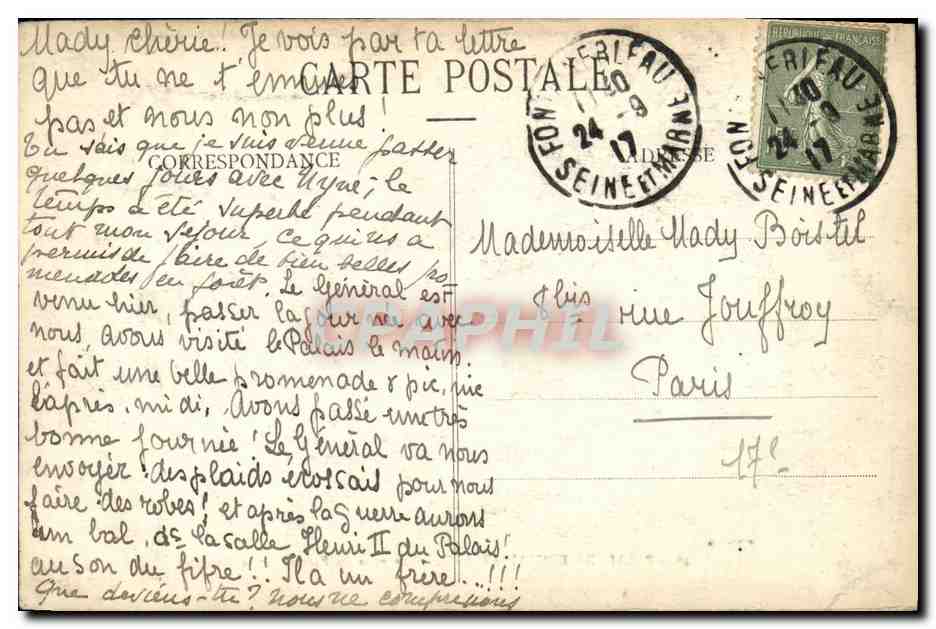 Mady chérie! Je vois par ta lettre
que tu ne t'ennuies
pas et nous non plus!
CARTE POSTALE
CORRESPONDANCE
ADRESSE
Tu sais que je suis venue passer
quelques jours avec
le
temps a été superbe pendant
tout mon séjour, ce qui ns a
permis de faire de bien belles pro
menades en forêt. Le Général est
venu hier, passer la journée avec
nous, avons visité le Palais le matin,
et fait une belle promenade & pic, nic
l'après, midi, Avons passé une très
bonne journée! Le Général va nous
envoyer des plaids écossais pour nous
faire des robes! et après la guerre aurons
un bal, ds la salle Henri II du Palais!
au son du fifre!! Il a un frère...!!!
Que deviens-tu? nous ne comprenons
Mademoiselle Mady Boistel
8 bis rue Jouffroy
Paris
17e
RÉPUBLIQUE FRANÇAISE
24 -9 17
SEINE ET MARNE
24 -9 17
SEINE ET MARNE
CPAPHIL